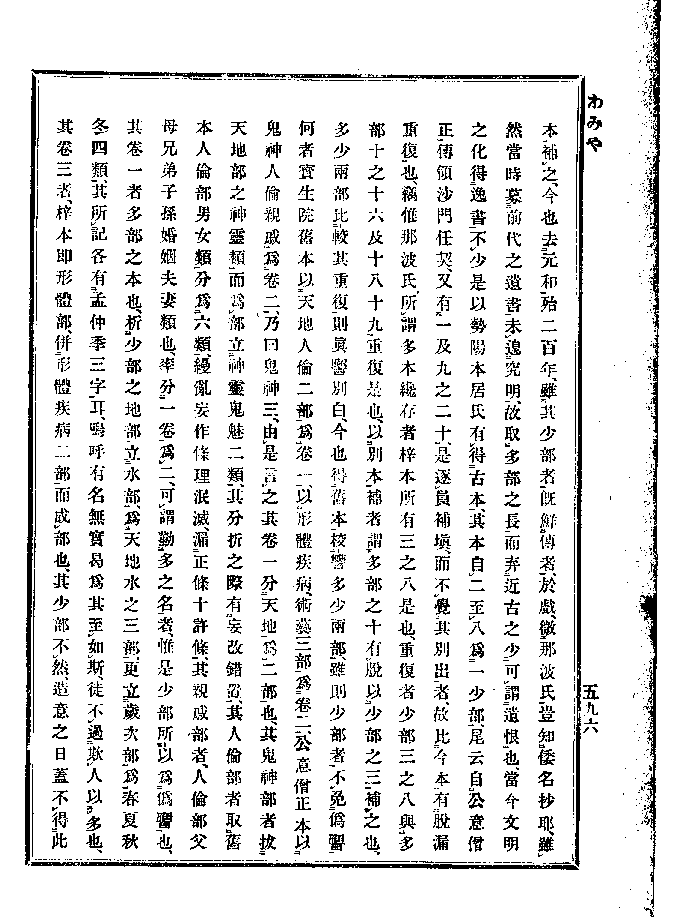 わみや
本補之、今也去元和殆二百年、雖其少部者既鮮傳者、於戲微那波氏、豈知倭名抄耶、雖
然當時募前代之遺書、未遑究明、故取多部之長、而弃近古之少、可謂遺恨也、當今文明
之化、得逸書不少、是以勢陽本居氏有得古本、其本自二至八爲一少部、尾云自公意僧
正傳領沙門任契、又有一及九之二十、是逐員補塡、而不覺其別出者、故比今本有脫漏
重復也、竊惟那波氏所謂多本纔存者、梓本所有三之八是也、重復者少部三之八與多
部十之十六及十八十九重復是也、以別本補者、謂多部之十有脫、以少部之三補之也、
多少兩部比較其重復、則眞贋別白、今也得舊本校讐多少兩部、雖則少部者不免僞贋
何者、寶生院舊本以天地人倫二部爲卷一、以形體疾病術藝三部爲卷二、公意僧正本以
鬼神人倫親戚爲卷二、乃曰鬼神三、由是言之、其卷一分天地爲二部也、其鬼神部者拔
天地部之神靈類、而爲部、立神靈鬼魅二類、其分折之際有妄改錯置、其人倫部者取舊
本人倫部男女類、分爲六類、縵亂妄作、條理泯滅、漏正條十許條、其親戚部者、人倫部父
母兄弟子孫婚姻夫妻類也、率分一卷爲二、可謂勤多之名者、惟是少部所以爲僞贋也、
其卷一者多部之本也、析少部之地部、立水部、爲天地水之三部、更立歲次部、爲春夏秋
冬四類、其所記各有孟仲季三字耳、嗚呼有名無實、曷爲其至如斯、徒不過欺人以多也、
其卷三者、梓本即形體部、併形體疾病二部而成部也、其少部不然、造意之日、蓋不得此
五九六